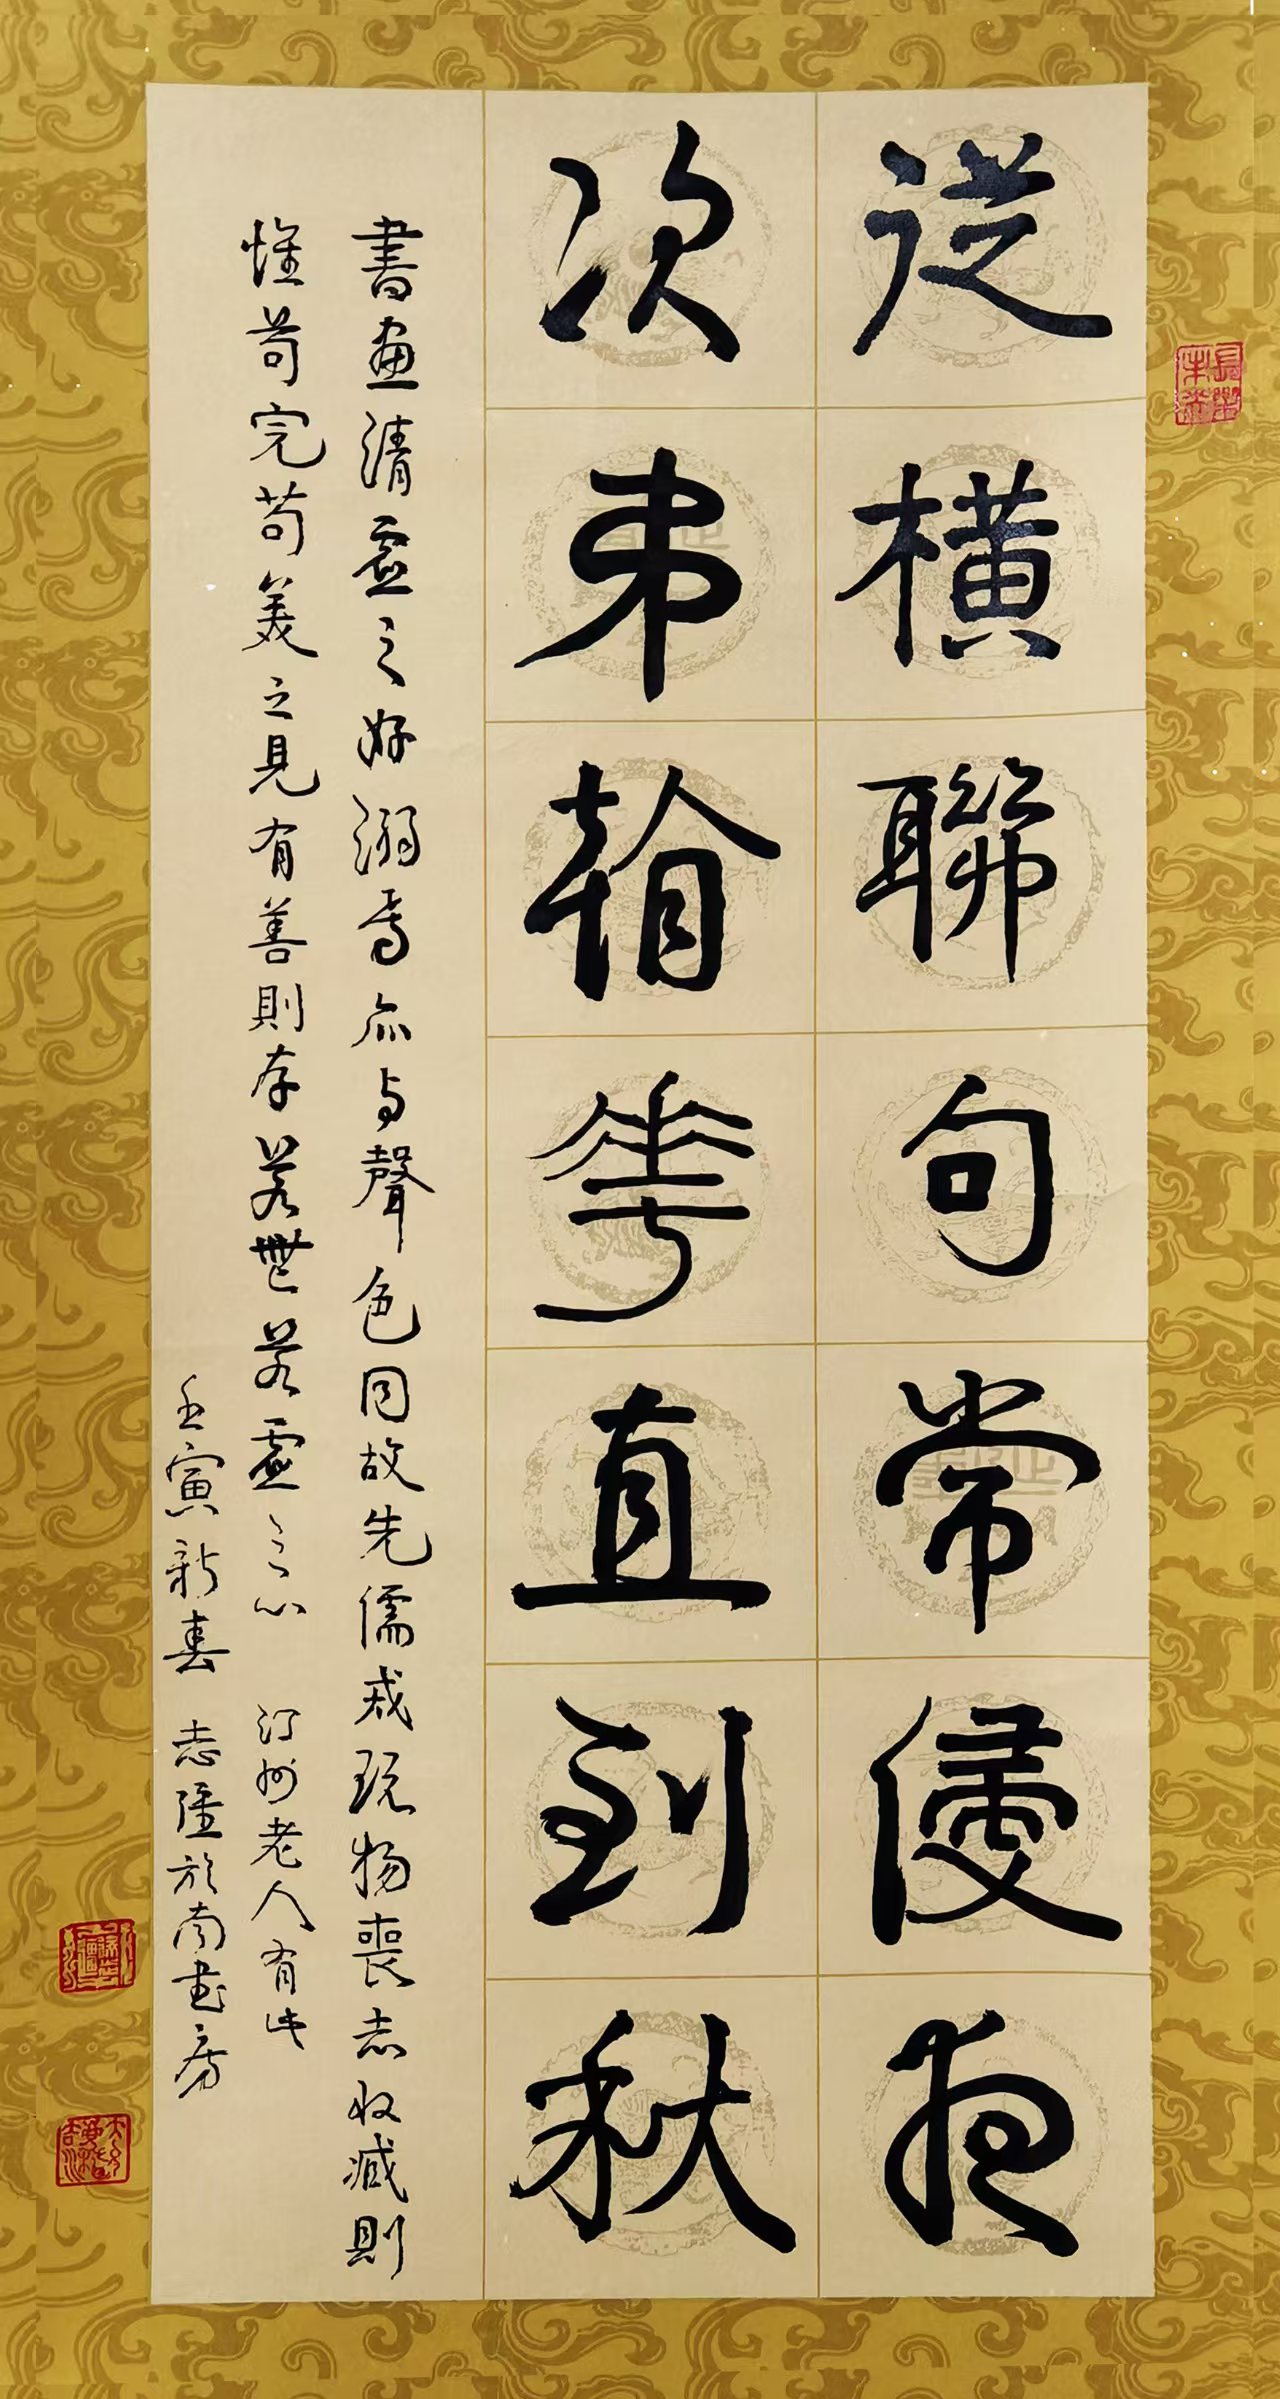 從橫聯句常侵夜
次弟看華直到秋
書畫清虛之好溺焉亦与聲色同故先儒戒玩物喪志收藏則
惟苟完苟美之見有善則存若無若虛之心 汀州老人有此
壬寅新春 志隆於南書房
長樂未央